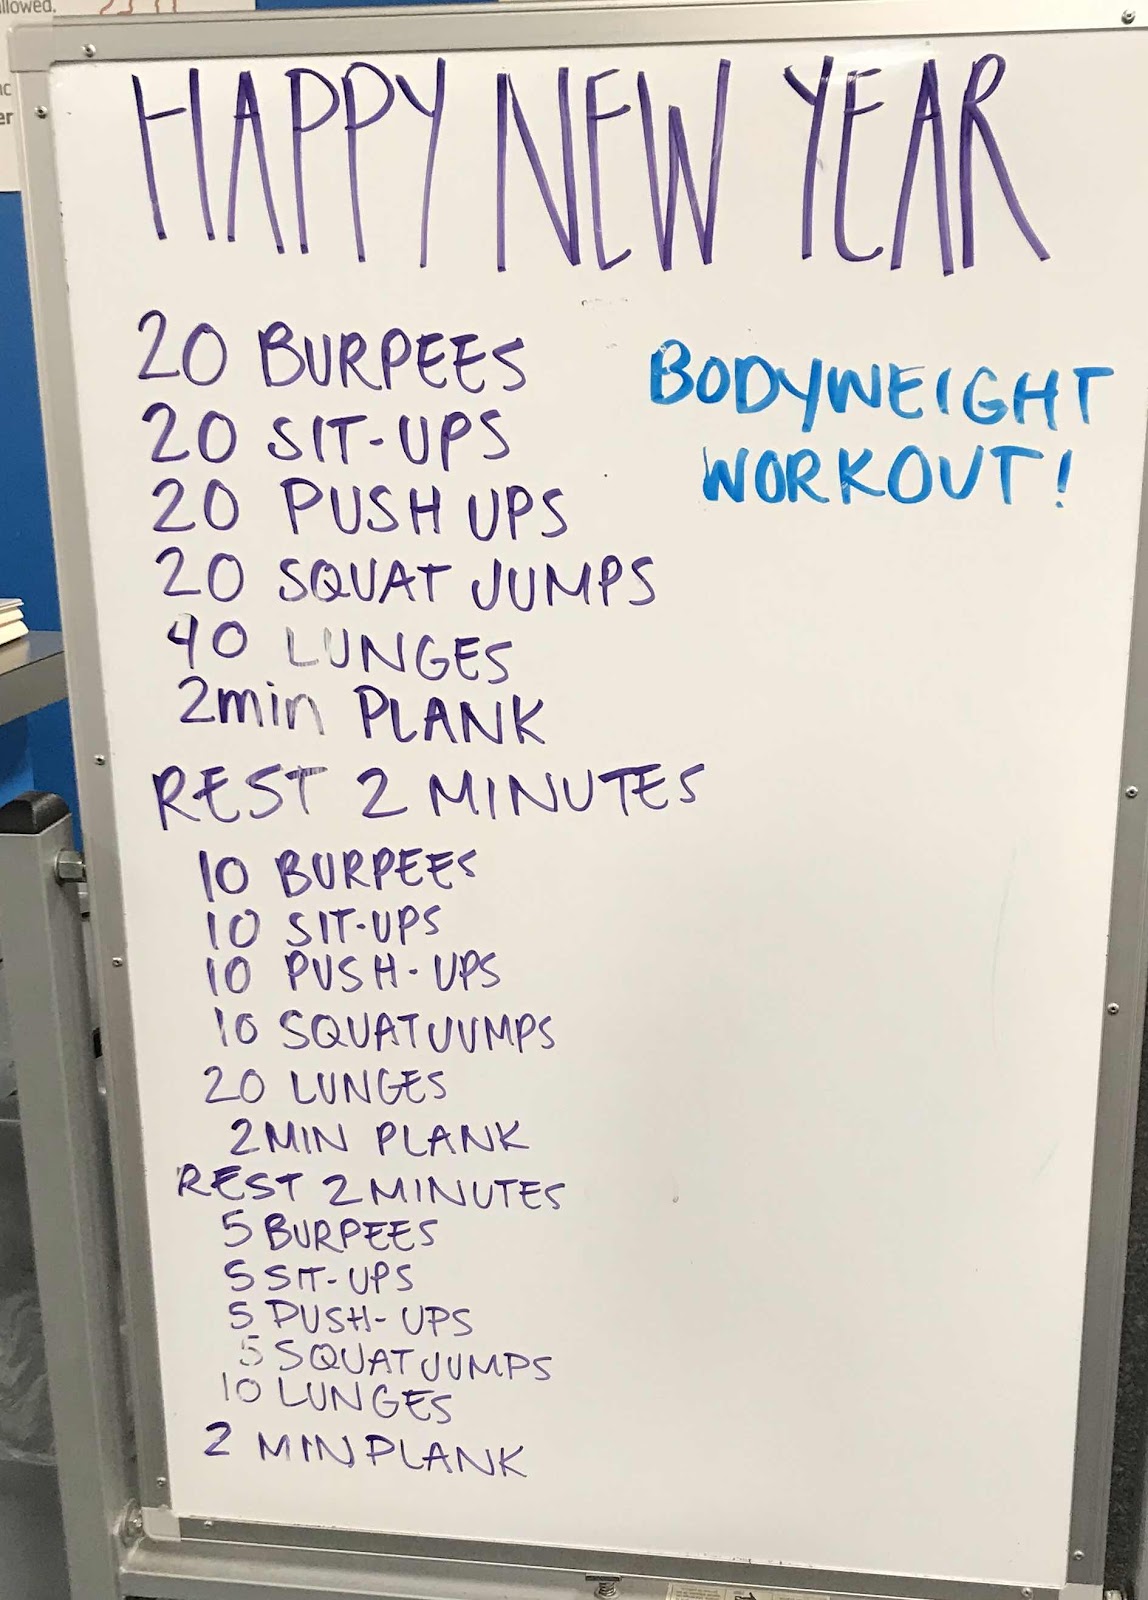 llowed.
er
HAPPY NEW YEAR
20 BURPEES
BODYWEIGHT
WORKOUT!
20 SIT-UPS
20 PUSH UPS
20 SQUAT JUMPS
40 LUNGES
2min PLANK
REST 2 MINUTES
10 BURPEES
10 SIT-UPS
10 PUSH-UPS
10 SQUAT JUMPS
20 LUNGES
2 MIN PLANK
REST 2 MINUTES
5 BURPEES
5 SIT-UPS
5 PUSH-UPS
5 SQUAT JUMPS
10 LUNGES
2 MIN PLANK